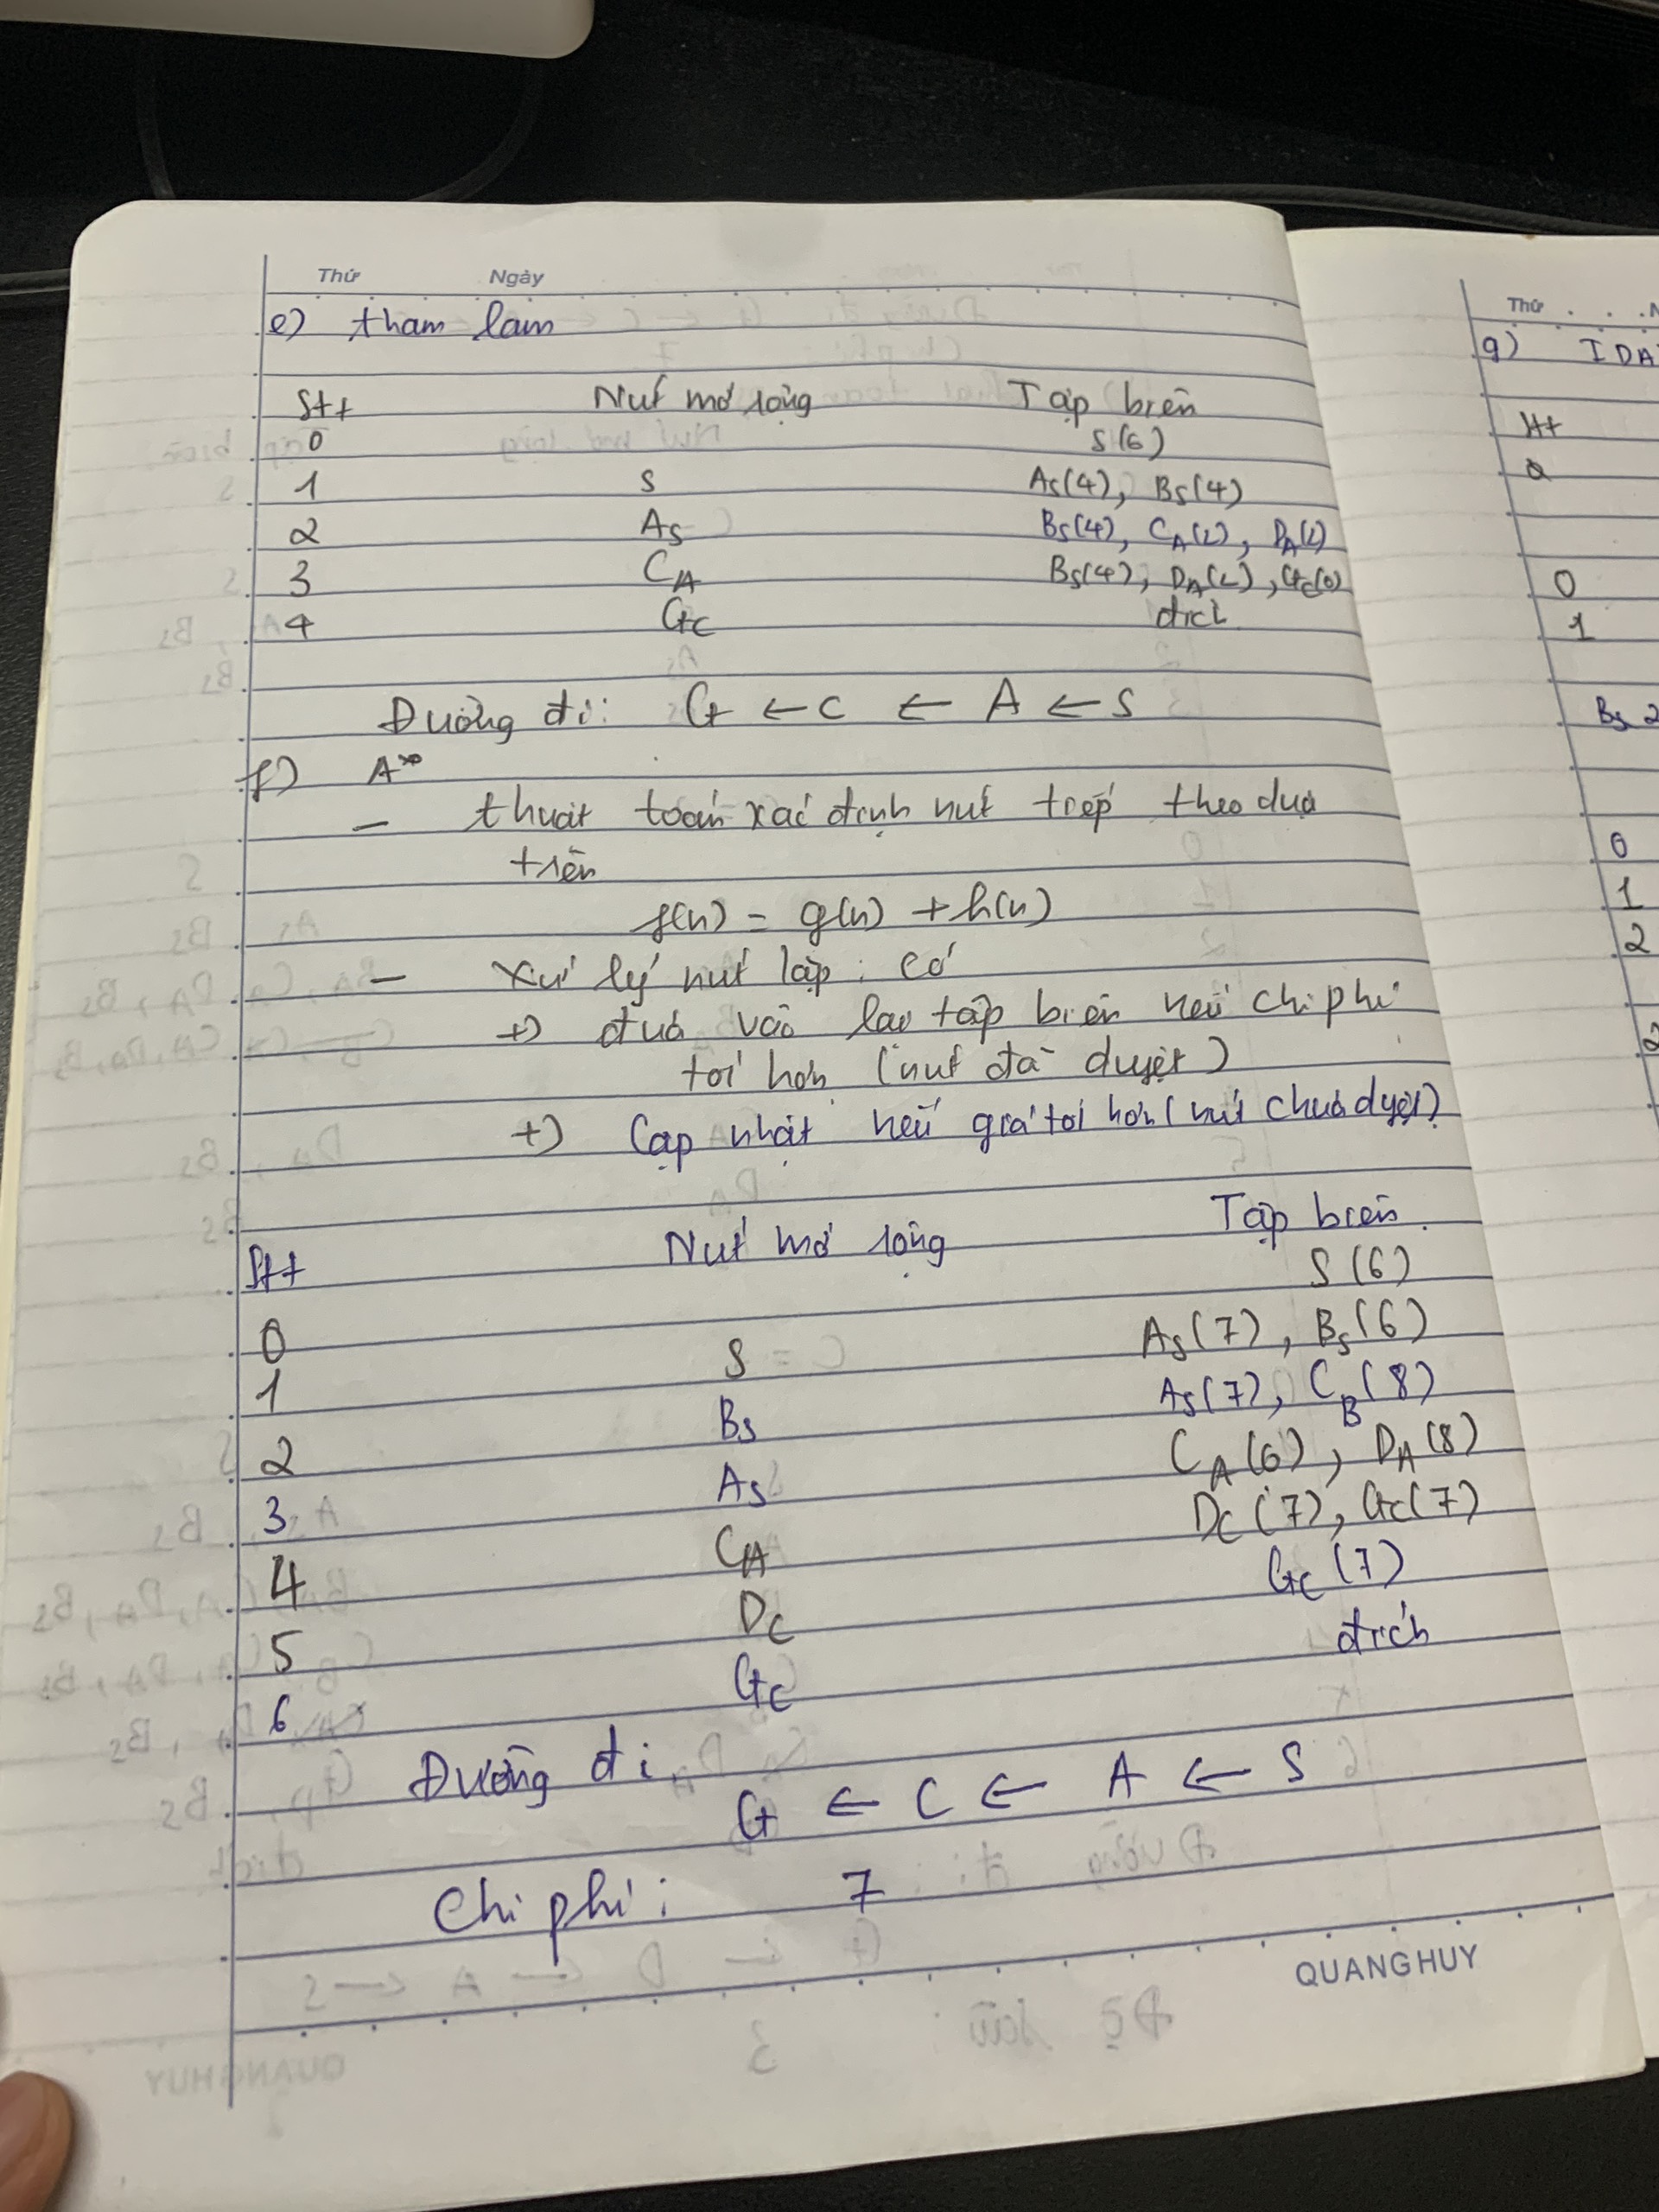 Thứ Ngày
e) tham lam
Stt Nút mở rộng Tập biên
0 S(6)
1 S AS(4), BS(4)
2 AS BS(4), CA(2), DA(2)
3 CA BS(4), DA(2), GC(0)
4 GC đích
Đường đi: G ← C ← A ← S
f) A*
- thuật toán xác định nút tiếp theo dựa
trên
f(n) = g(n) + h(n)
- xử lý nút lặp: có
+) đưa vào lại tập biên nếu chi phí
tối hơn (nút đã duyệt)
+) Cập nhật nếu giá tối hơn (nút chưa duyệt)
Stt Nút mở rộng Tập biên
0 S(6)
1 S AS(7), BS(6)
2 BS AS(7), CB(8)
3 AS CA(6), DA(8)
4 CA DC(7), GC(7)
5 DC GC(7)
6 GC đích
Đường đi
G ← C ← A ← S
Chi phí: 7
QUANG HUY
Thứ
g) IDA
Stt
0
0
1
BS 2
0
1
2
2